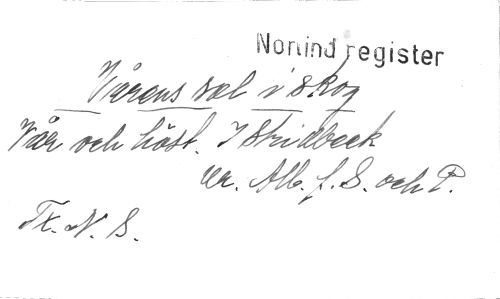 Norlind register
Vårens väl i skog
Vår och höst. I Stridbeck
ur. Alb. f. S. och P.
Tx. N. S.